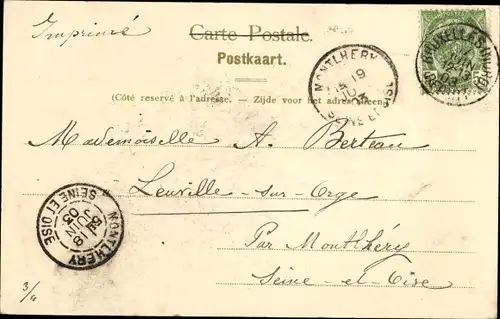 Imprimé
Carte Postale.
Postkaart.
(Côté reservé à l'adresse. – Zijde voor het adres alleen.)
MONTLHERY
19
SEINE ET OISE
BRUXELLES
Mademoiselle A. Berteau
Leuville-sur-Orge
Par Montlhéry
Seine-et-Oise
MONTLHERY
18
JUIN
03
SEINE ET OISE